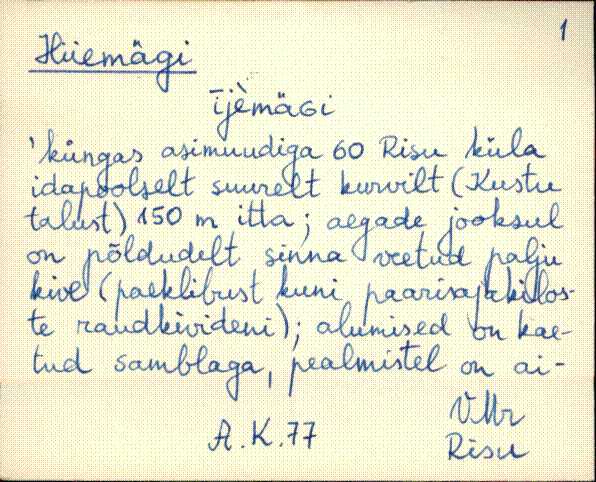 1
Hüemägi
ījèmäGi
'küngas asimuudiga 60 Risu küla
idapoolselt suurelt kurvilt (Kustu
talust) 150 m itta; aegade jooksul
on põldudelt sinna veetud palju
kive (paeklibust kuni paarisajakilos-
te raudkivideni); alumised on kae-
tud samblaga, pealmistel on ai-
VMr
A.K.77
Risu